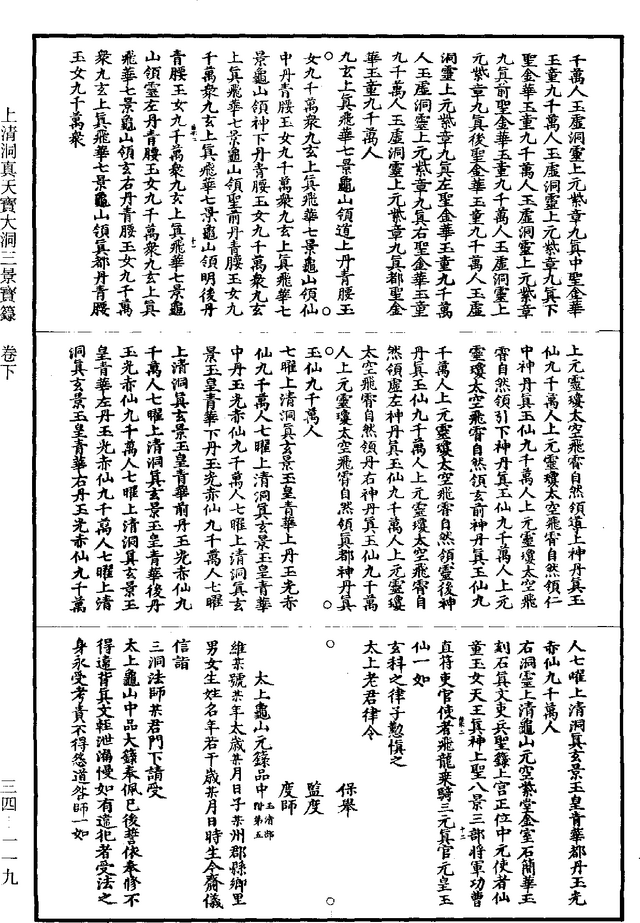 千萬人玉虛洞靈上元紫章九真中聖金華
玉童九千萬人玉虛洞靈上元紫章九真下
聖金華玉童九千萬人玉虛洞靈上元紫章
九真前聖金華玉童九千萬人玉虛洞靈上
元紫章九真後聖金華玉童九千萬人玉虛
洞靈上元紫章九真左聖金華玉童九千萬
人玉虛洞靈上元紫章九真右聖金華玉童
九千萬人玉虛洞靈上元紫章九真都聖金
華玉童九千萬人
九玄上真飛華七景龜山領道上丹青腰玉
女九千萬衆九玄上真飛華七景龜山領仙
中丹青腰玉女九千萬衆九玄上真飛華七
景龜山領神下丹青腰玉女九千萬衆九玄
上真飛華七景龜山領聖前丹青腰玉女九
千萬衆九玄上真飛華七景龜山領明後丹
青腰玉女九千萬衆九玄上真飛華七景龜
山領靈左丹青腰玉女九千萬衆九玄上真
飛華七景龜山領玄右丹青腰玉女九千萬
衆九玄上真飛華七景龜山領真都丹青腰
玉女九千萬衆
上元靈瓊太空飛霄自然領道上神丹真玉
仙九千萬人上元靈瓊太空飛霄自然領仁
中神丹真玉仙九千萬人上元靈瓊太空飛
霄自然領引下神丹真玉仙九千萬人上元
靈瓊太空飛霄自然領玄前神丹真玉仙九
千萬人上元靈瓊太空飛霄自然領靈後神
丹真玉仙九千萬人上元靈瓊太空飛霄自
然領虛左神丹真玉仙九千萬人上元靈瓊
太空飛霄自然領丹右神丹真玉仙九千萬
人上元靈瓊太空飛霄自然領真都神丹真
玉仙九千萬人
七曜上清洞真玄景玉皇青華上丹玉光赤
仙九千萬人七曜上清洞真玄景玉皇青華
中丹玉光赤仙九千萬人七曜上清洞真玄
景玉皇青華下丹玉光赤仙九千萬人七曜
上清洞真玄景玉皇青華前丹玉光赤仙九
千萬人七曜上清洞真玄景玉皇青華後丹
玉光赤仙九千萬人七曜上清洞真玄景玉
皇青華左丹玉光赤仙九千萬人七曜上清
洞真玄景玉皇青華右丹玉光赤仙九千萬
人七曜上清洞真玄景玉皇青華都丹玉光
赤仙九千萬人
右洞靈上清龜山元空紫堂金室石簡華玉
刻石真文吏兵聖籙上官正位中元使者仙
童玉女天王真神上聖八景三部將軍功曹
直符吏官使者飛龍乘騎三元真官元皇玉
仙一如
玄科之律子懃慎之
太上老君律令
保舉
監度
度師
太上龜山元籙品中玉清部階第五
維某號某年太歲某月日子某州郡縣鄉里
男女生姓名年若干歲某月日時生今齋儀
信詣
三洞法師某君門下請受
太上龜山中品大籙奉佩已後誓依奉修不
得違背真文輕泄漏慢如有違犯者受法之
身永受考責不得怨道咎師一如
上清洞真天寶大洞三景寶籙 卷下
三四—一一九